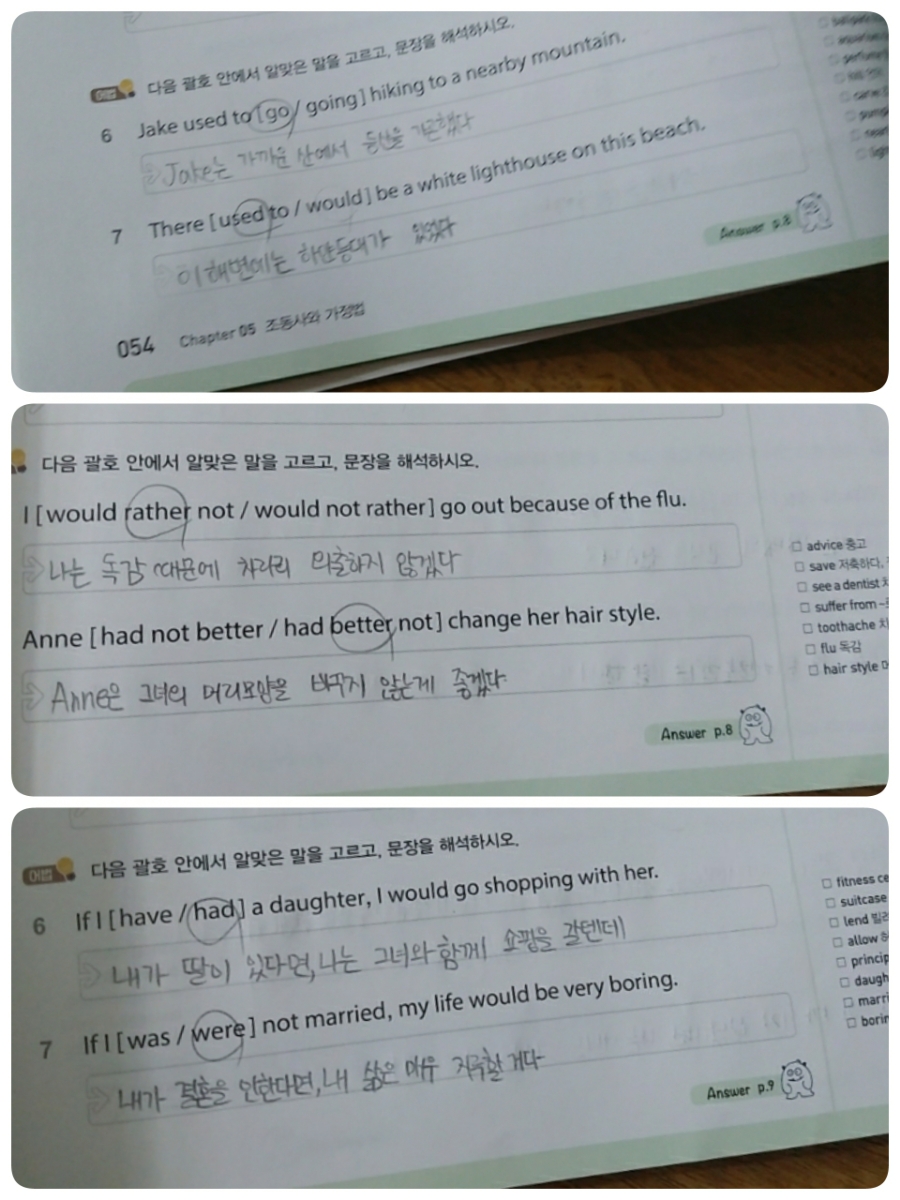 어법 다음 괄호 안에서 알맞은 말을 고르고, 문장을 해석하시오.
6 Jake used to [go / going] hiking to a nearby mountain.
Jake는 가까운 산에서 등산을 가곤했다
7 There [used to / would] be a white lighthouse on this beach.
이 해변에는 하얀등대가 있었다
Answer p.8
054 Chapter 05 조동사와 가정법
다음 괄호 안에서 알맞은 말을 고르고, 문장을 해석하시오.
I [would rather not / would not rather] go out because of the flu.
나는 독감 때문에 차라리 외출하지 않겠다
Anne [had not better / had better not] change her hair style.
Anne은 그녀의 머리모양을 바꾸지 않는게 좋겠다
advice 충고
save 저축하다,
see a dentist
suffer from
toothache
flu 독감
hair style
Answer p.8
어법 다음 괄호 안에서 알맞은 말을 고르고, 문장을 해석하시오.
6 If I [have / had] a daughter, I would go shopping with her.
내가 딸이 있다면, 나는 그녀와 함께 쇼핑을 갈텐데
7 If I [was / were] not married, my life would be very boring.
내가 결혼을 안한다면, 내 삶은 매우 지루할 거다
fitness
suitcase
lend
allow
Answer p.9